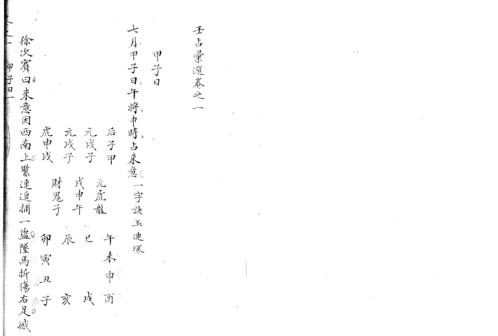 壬占彙選卷之一
甲子日
七月甲子日午將申時占來意 一字訣玉連環
后子甲 午未申酉
元虎龍
元戌子 巳 戌
戌申午
元戌子 辰 亥
財鬼子
虎申戌 卯寅丑子
徐次賓曰來意因西南上緊速追捕一盜墜馬折傷右足
甲子日一